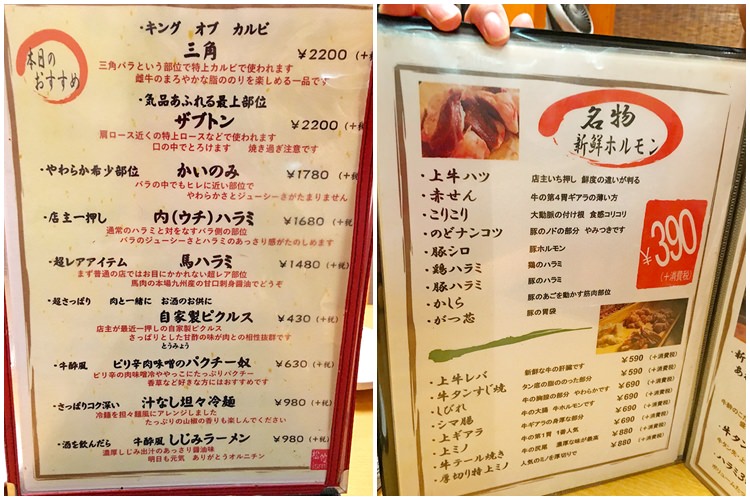 本日の
おすすめ
・キング オブ カルビ
三角 ¥2200 (+
三角バラという部位で特上カルビで使われます
雌牛のまろやかな脂ののりを楽しめる一品です
・気品あふれる最上部位
ザブトン ¥2200 (+
肩ロース近くの特上ロースなどで使われます
口の中でとろけます 焼き過ぎ注意です
・やわらか希少部位 かいのみ ¥1780 (+
バラの中でもヒレに近い部位で
やわらかさとジューシーさがたまりません
・店主一押し 内(ウチ)ハラミ ¥1680 (+
通常のハラミと対をなすバラ側の部位
バラのジューシーさとハラミのあっさり感がたのしめます
・超レアアイテム 馬ハラミ ¥1480 (+
まず普通の店ではお目にかかれない超レア部位
馬肉の本場九州産の甘口刺身醤油でどうぞ
・超さっぱり 肉と一緒に お酒のお供に
自家製ピクルス ¥430 (+
店主が最近一押しの自家製ピクルス
さっぱりとした甘酢の味が肉との相性抜群です
とうみょう
・牛酔風 ピリ辛肉味噌のパクチー奴 ¥630 (+
ピリ辛の肉味噌冷ややっこにたっぷりパクチー
香草など好きな方にはおすすめです
・さっぱりコク深い 汁なし坦々冷麺 ¥980 (+
冷麺を担々麺風にアレンジしました
たっぷりの山椒の香りも楽しんでください
・酒を飲んだら 牛酔風 しじみラーメン ¥980 (+
濃厚しじみ出汁のあっさり醤油味
明日も元気 ありがとうオルニチン
名物
新鮮ホルモン
・上牛ハツ 店主いち押し 鮮度の違いが判る
・赤せん 牛の第4胃ギアラの薄い方
・こりこり 大動脈の付け根 食感コリコリ
・のどナンコツ 豚のノドの部分 やみつきです
・豚シロ 豚ホルモン
・鶏ハラミ 鶏のハラミ
・豚ハラミ 豚のハラミ
・かしら 豚のあごを動かす筋肉部位
・がつ芯 豚の胃袋
¥390
(+消費税)
・上牛レバ 新鮮な牛の肝臓です ¥590 (+消費税)
・牛タンすじ焼 タン底の脂ののった部分 ¥590 (+消費税)
・しびれ 牛の胸腺の部分 やわらかです ¥690 (+消費税)
・シマ腸 牛の大腸 牛ホルモンです ¥690 (+消費税)
・上ギアラ 牛ギアラの身厚な部分 ¥690 (+消費税)
・上ミノ 牛の第1胃 1番人気 ¥880 (+消費税)
・牛テール焼き 牛の尻尾 濃厚な味が最高 ¥880 (+消費税)
・厚切り特上ミノ 人気のミノを厚切りで